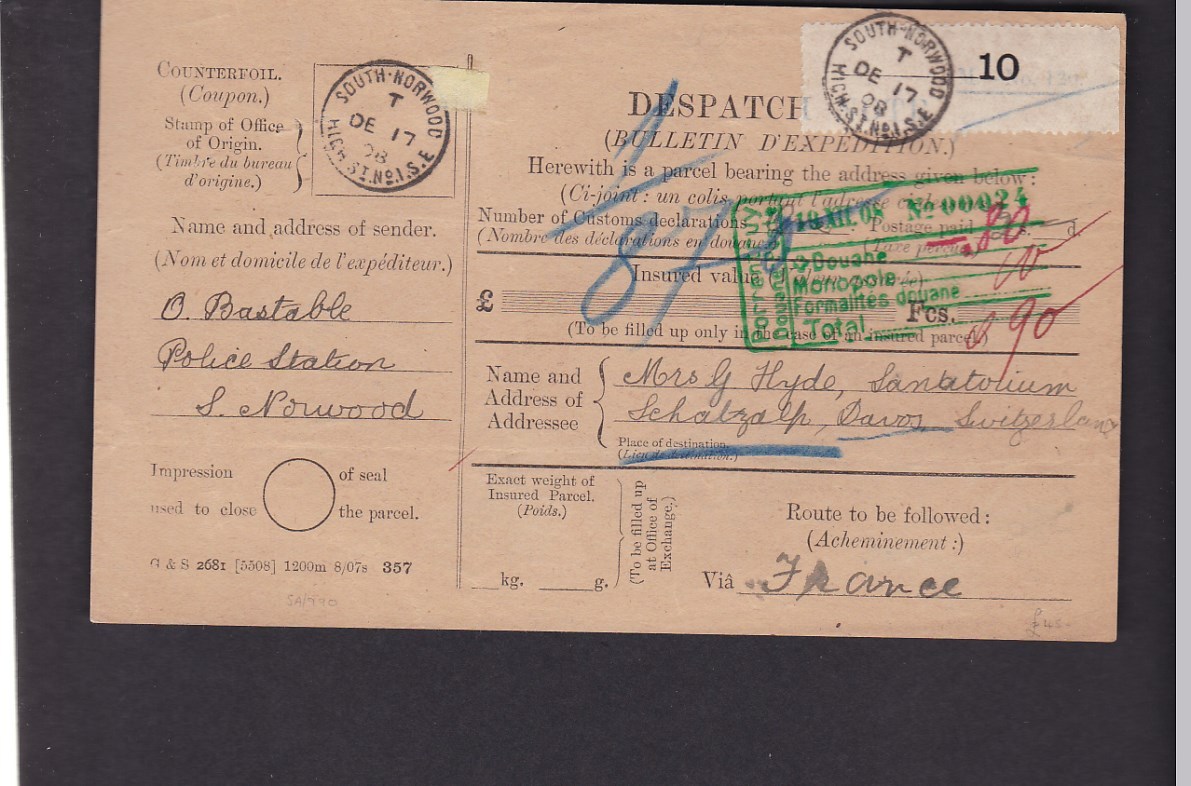 COUNTERFOIL.
(Coupon.)
Stamp of Office
of Origin.
(Timbre du bureau
d'origine.)
SOUTH·NORWOOD
T
DE 17
08
HIGH·ST.No.1.S.E
Name and address of sender.
(Nom et domicile de l'expéditeur.)
O. Bastable
Police Station
S. Norwood
Impression
of seal
used to close
the parcel.
G & S 2681 [5508] 1200m 8/07s 357
SOUTH·NORWOOD
T
DE 17
08
HIGH·ST.No.1.S.E
10
DESPATCH
(BULLETIN D'EXPÉDITION.)
Herewith is a parcel bearing the address given below:
(Ci-joint: un colis portant l'adresse
Number of Customs declarations
Postage paid d.
(Nombre des déclarations en douane)
(Taxe perçue)
19 XII. 08 No 00024
Douane
Monopole
Formalités douane
Total
80
10
90
Insured value
£
Fcs.
(To be filled up only in the case of an insured parcel.)
Name and
Address of
Addressee
Mrs G Hyde, Sanatorium
Schatzalp, Davos Switzerland
Place of destination.
(Lieu de destination.)
Exact weight of
Insured Parcel.
(Poids.)
kg. g.
(To be filled up
at Office of
Exchange.)
Route to be followed:
(Acheminement:)
Viâ France